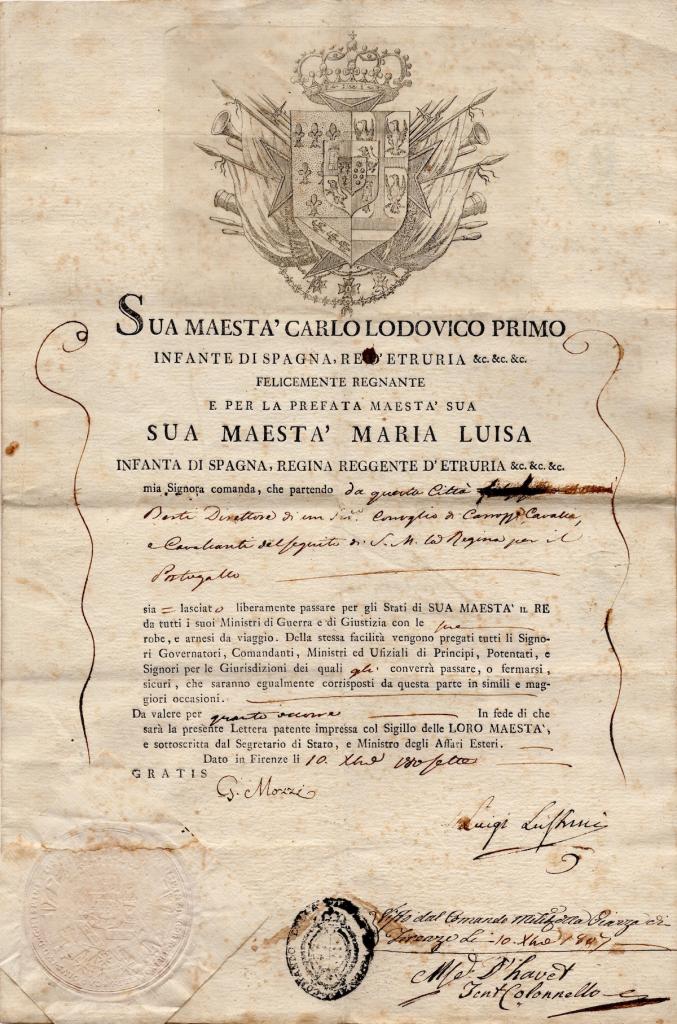 SUA MAESTA' CARLO LODOVICO PRIMO
INFANTE DI SPAGNA, RE D'ETRURIA &c. &c. &c.
FELICEMENTE REGNANTE
E PER LA PREFATA MAESTA' SUA
SUA MAESTA' MARIA LUISA
INFANTA DI SPAGNA, REGINA REGGENTE D'ETRURIA &c. &c. &c.
mia Signora comanda, che partendo da questa Città
Berti Direttore di un Convoglio di Cavalli,
e Cavalcanti del seguito di S. M. la Regina per il
Portogallo
sia = lasciato liberamente passare per gli Stati di SUA MAESTA' IL RE
da tutti i suoi Ministri di Guerra e di Giustizia con le sue
robe, e arnesi da viaggio. Della stessa facilità vengono pregati tutti li Signo-
ri Governatori, Comandanti, Ministri ed Ufiziali di Principi, Potentati, e
Signori per le Giurisdizioni dei quali gli converrà passare, o fermarsi,
sicuri, che saranno egualmente corrisposti da questa parte in simili e mag-
giori occasioni.
Da valere per quanto occorre In fede di che
sarà la presente Lettera patente impressa col Sigillo delle LORO MAESTA',
e sottoscritta dal Segretario di Stato, e Ministro degli Affari Esteri.
Dato in Firenze li 10. Xbre 180sette
GRATIS
G. Mozzi
Luigi
Visto dal Comando Milit. della Piazza di
Firenze Li 10. Xbre 1807
D'havet
Tent Colonnello